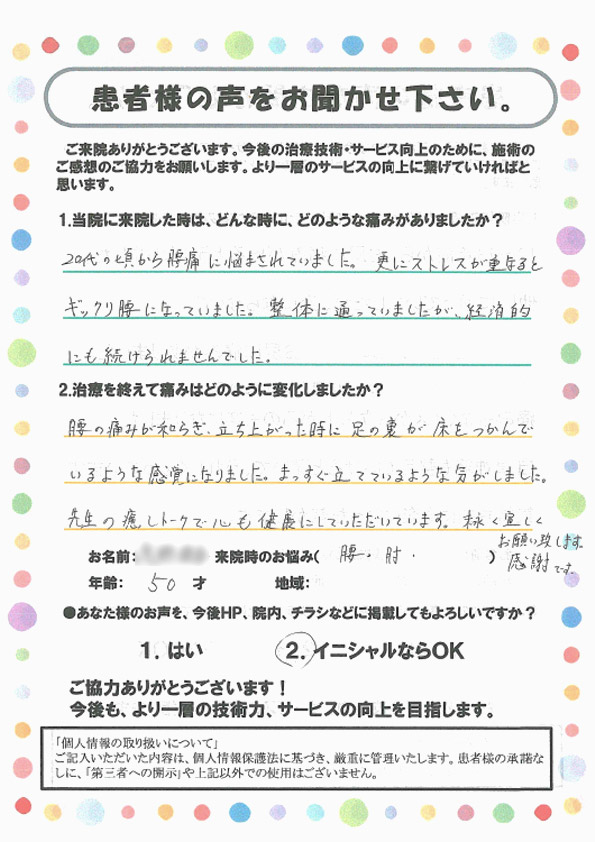 患者様の声をお聞かせ下さい。
ご来院ありがとうございます。今後の治療技術・サービス向上のために、施術の
ご感想のご協力をお願いします。より一層のサービスの向上に繋げていければと
思います。
1.当院に来院した時は、どんな時に、どのような痛みがありましたか？
20代の頃から腰痛に悩まされていました。更にストレスが重なると
ギックリ腰になっていました。整体に通っていましたが、経済的
にも続けられませんでした。
2.治療を終えて痛みはどのように変化しましたか？
腰の痛みが和らぎ、立ち上がった時に足の裏が床をつかんで
いるような感覚になりました。まっすぐ立てているような気がしました。
先生の癒しトークで心も健康にしていただいています。末永く宜しく
お願い致します。
感謝です。
お名前: 来院時のお悩み( 腰・肘・ )
年齢: 50 才 地域:
●あなた様のお声を、今後HP、院内、チラシなどに掲載してもよろしいですか？
1. はい 2. イニシャルならOK
ご協力ありがとうございます！
今後も、より一層の技術力、サービスの向上を目指します。
「個人情報の取り扱いについて」
ご記入いただいた内容は、個人情報保護法に基づき、厳重に管理いたします。患者様の承諾な
しに、「第三者への開示」や上記以外での使用はございません。